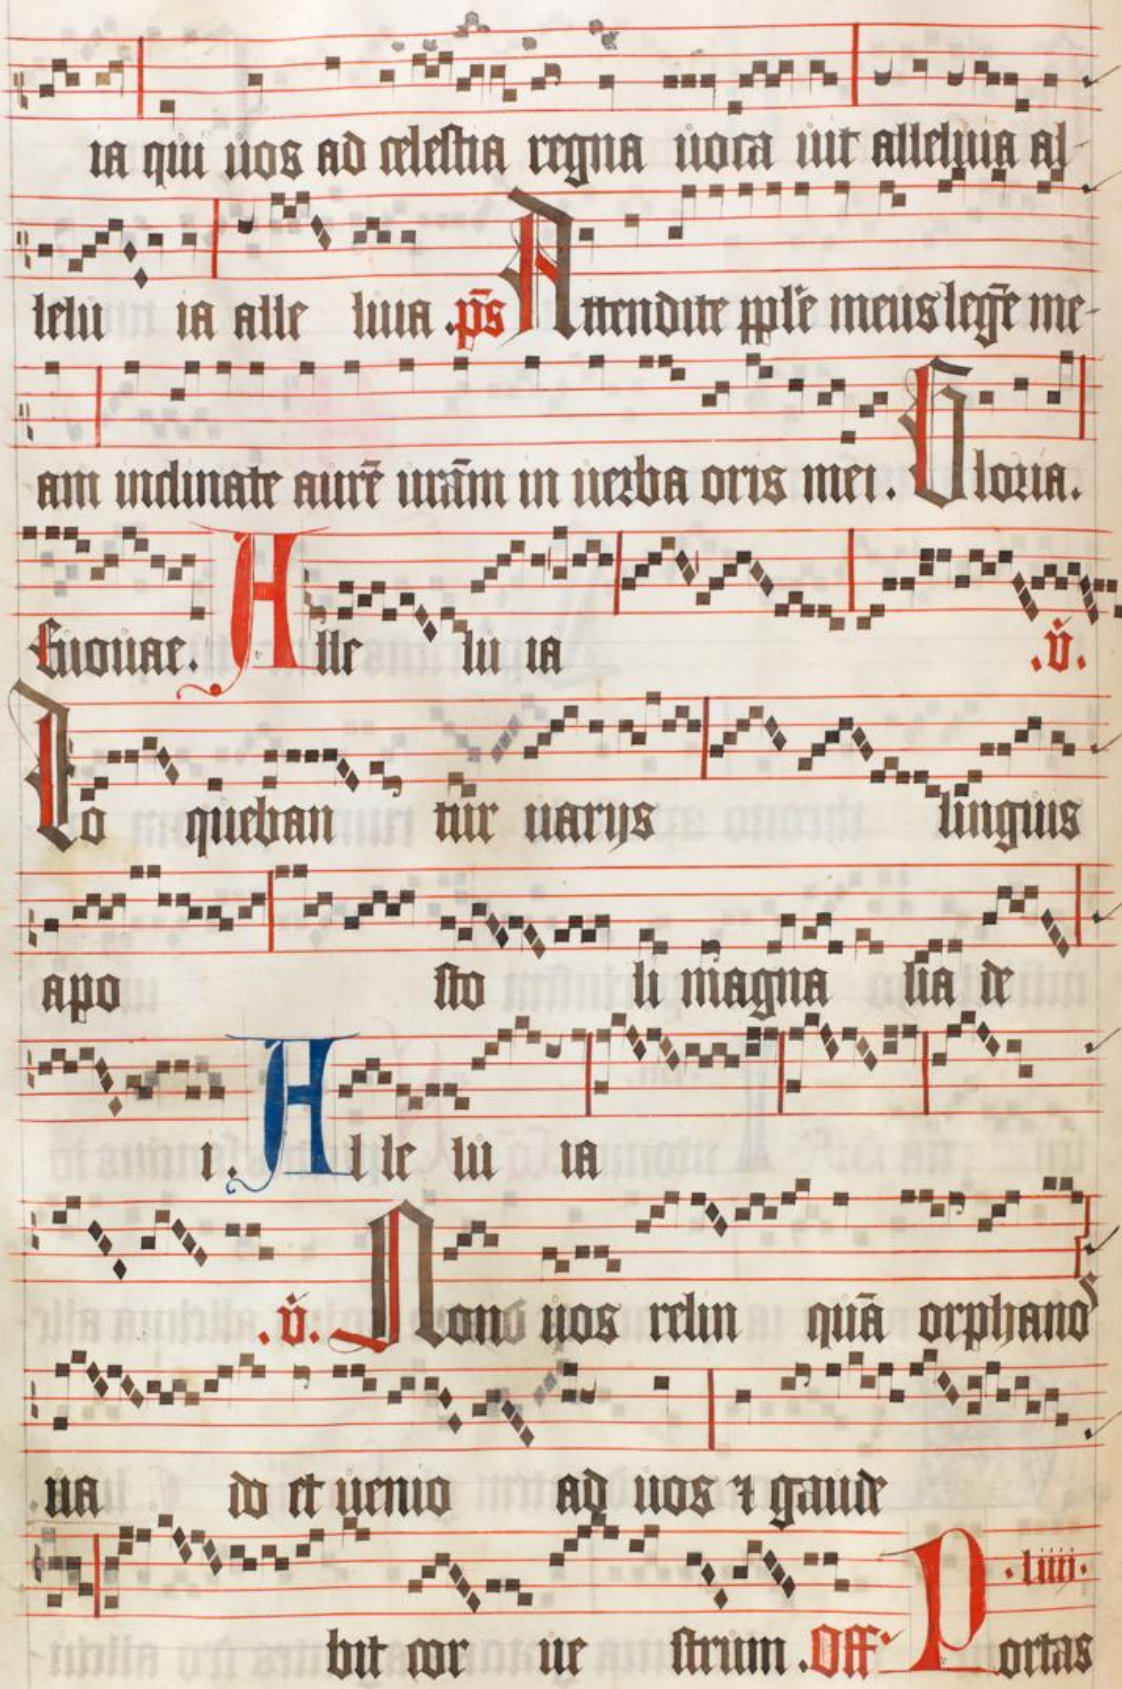 ia qui uos ad celestia regna uoca uit alleluia al
lelu ia alle luia .ps̄ Attendite pple meus legē me-
am inclinate aurē urām in uerba oris mei. Gloria.
Euouae. Alle lu ia .v̄.
Lo queban tur uarijs linguis
apo sto li magna lia de
i. Al le lu ia
.v̄. Non uos relin quā orphanos
ua do et uenio ad uos ⁊ gaude
bit cor ue strum .Off. Portas .liiii.